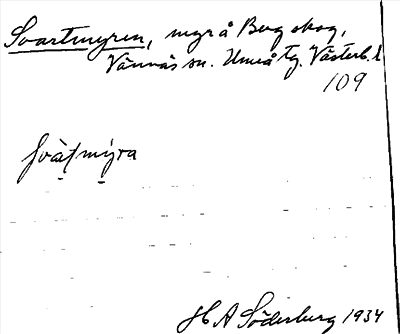 Svartmyren, myr å Berg skog,
Vännäs sn. Umeå tg. Västerb. l
109
svàťmýra
H A Söderburg 1934